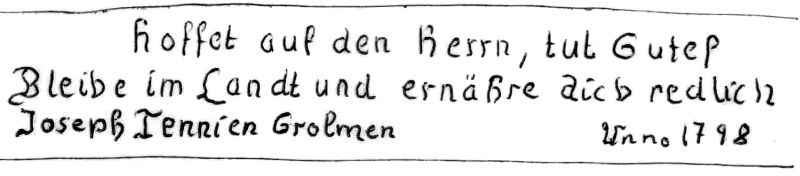 Hoffet auf den Herrn, tut Guteß
Bleibe im Landt und ernähre dich redlich
Joseph Tennien Grolmen Anno 1798